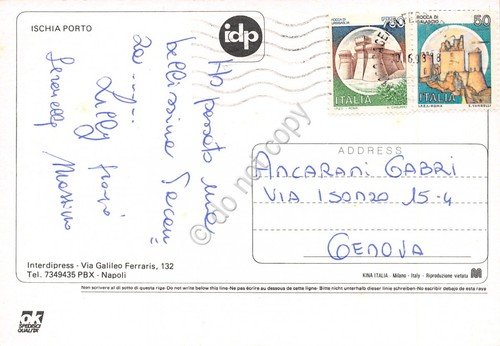 ISCHIA PORTO
idp
ROCCA DI URBISAGLIA
700
ITALIA
ROCCA DI CALASCIO
50
ITALIA
Ho passato una
bellissima
Lilly
Serenella
Massimo
ADDRESS
ANCARANI GABRI
VIA ISONZO 15-4
GENOVA
do not copy
Interdipress · Via Galileo Ferraris, 132
Tel. 7349435 PBX - Napoli
KINA ITALIA - Milano - Italy - Riproduzione vietata
Non scrivere al di sotto di questa riga - Do not write below this line - Ne pas écrire au dessous de cette ligne - Bitte nicht unterhalb dieser linie schreiben - No escribir debajo de esta raya
ok
SPEDIRECI
QUALITA'